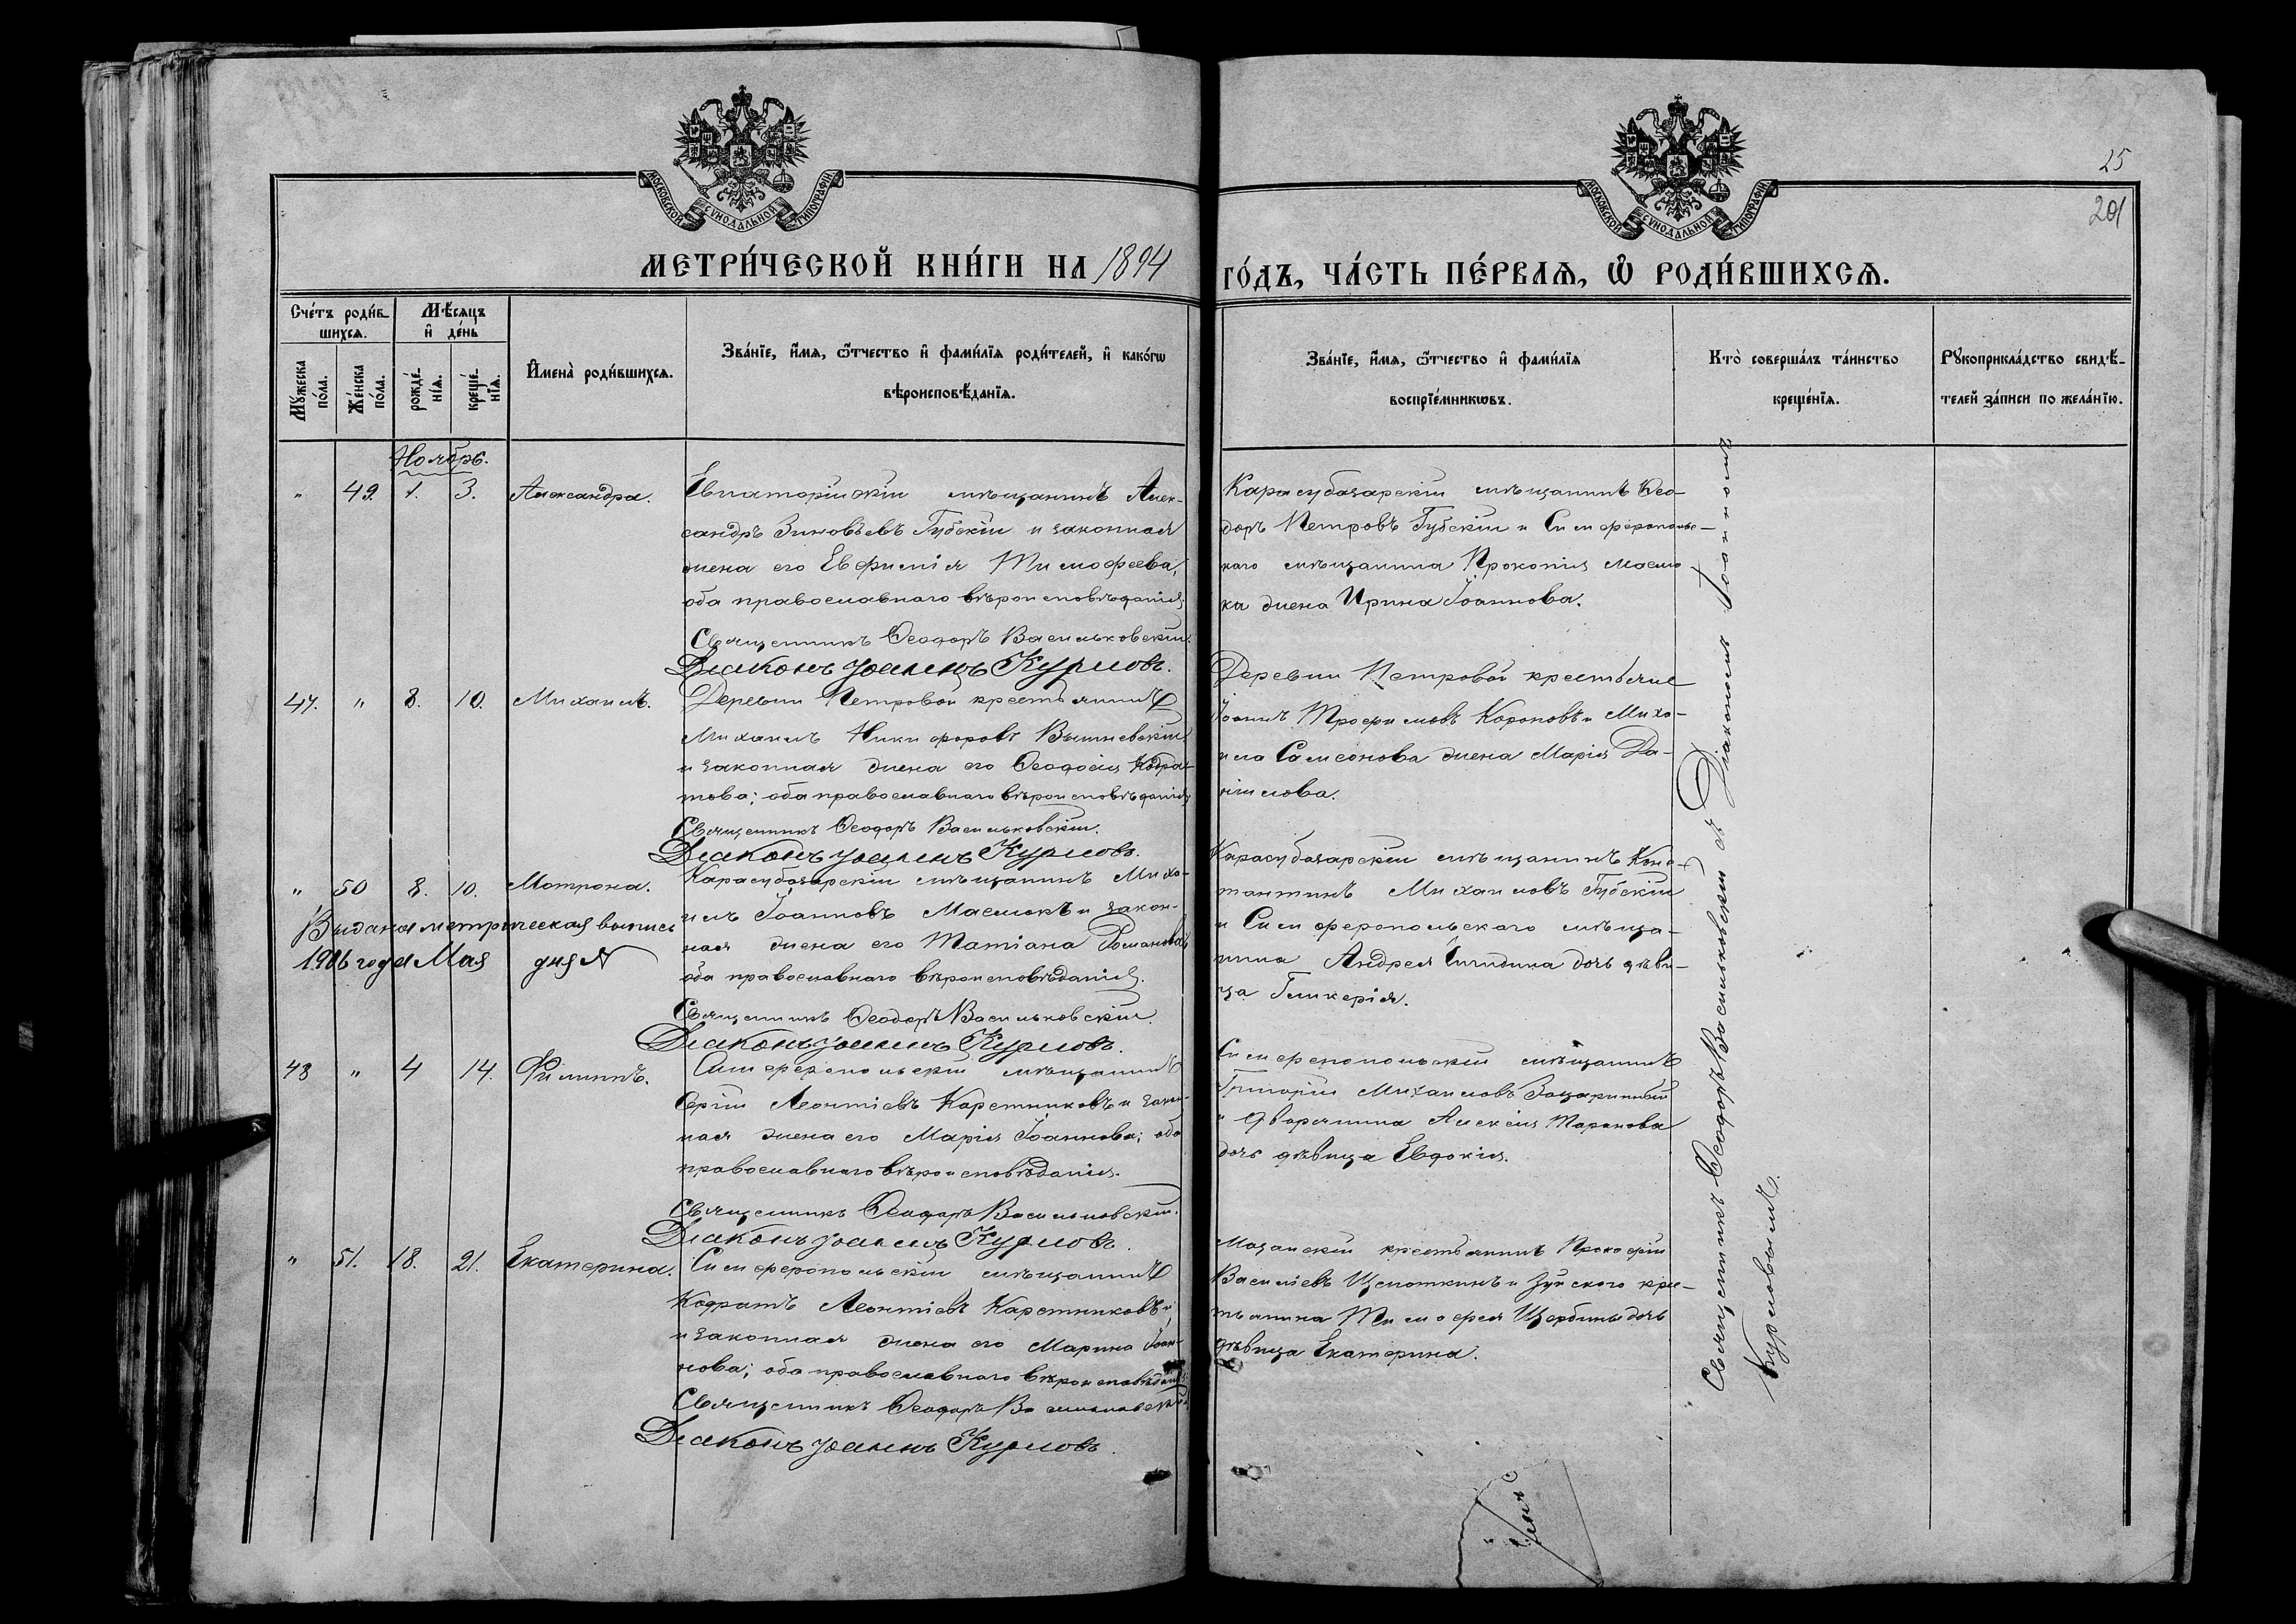 25
201
МОСКОВСКОЙ СѴНОДАЛЬНОЙ ТИПОГРАФІИ
МОСКОВСКОЙ СѴНОДАЛЬНОЙ ТИПОГРАФІИ
МЕТРИ́ЧЕСКОЙ КНИ́ГИ НА 1894
ГО́ДЪ, ЧА́СТЬ ПЕ́РВАЯ, Ѡ РОДИ́ВШИХСЯ.
Сче́тъ роди́в-
шихся.
Мѣ́сяцъ
и де́нь
Му́жеска
по́ла.
Же́нска
по́ла.
рожде́-
нія.
креще́-
нія.
Имена̀ роди́вшихся.
Зва́нїе, и́мя, ѻ҆́тчество и фами́лїя роди́телей, и како́гѡ
вѣроисповѣ́данїя.
Зва́нїе, и́мя, ѻ҆́тчество и фами́лїя
воспрїе́мникѡвъ.
Кто̀ соверша́лъ та́инство
креще́нїя.
Рꙋкоприкла́дство свидѣ́-
телей за́писи по жела́нїю.
Ноябрь.
" 49. 1. 3. Александра.
Евпаторійскій мѣщанинъ Алек-
сандръ Зиновьевъ Губскій и законная
жена его Евфимія Тимофеева,
оба православнаго вѣроисповѣданія.
Священникъ Ѳеодоръ Васильковскій
Діаконъ Іоаннъ Курловъ.
Карасубазарскій мѣщанинъ Ѳео-
доръ Петровъ Губскій и Симферопольс-
каго мѣщанина Прокопія
жена Ирина Іоаннова.
47. " 8. 10. Михаилъ.
Деревни Петровой крестьянинъ
Михаилъ Никифоровъ Вышневскій
и законная жена его Ѳеодосія Кодра-
това; оба православнаго вѣроисповѣданія
Священникъ Ѳеодоръ Васильковскій.
Діаконъ Іоаннъ Курловъ.
Деревни Петровой крестьяне
Іоаннъ Трофимовъ и Миха-
ила Самсонова жена Марія Да-
ніилова.
" 50 8. 10. Матрона.
Выдана метрическая выпись
1906 года Мая дня №
Карасубазарскій мѣщанинъ Миха-
илъ Іоанновъ и закон-
ная жена его Татіана Романова
оба православнаго вѣроисповѣданія.
Священникъ Ѳеодоръ Васильковскій.
Діаконъ Іоаннъ Курловъ.
Карасубазарскій мѣщанинъ Конс-
тантинъ Михаиловъ Губскій
и Симферопольскаго мѣща-
нина Андрея дочь дѣви-
ца Гликерія.
48 " 4 14. Филиппъ.
Симферопольскій мѣщанинъ
Сергій Леонтіевъ Каретниковъ и закон-
ная жена его Марія Іоаннова; оба
православнаго вѣроисповѣданія.
Священникъ Ѳеодоръ Васильковскій.
Діаконъ Іоаннъ Курловъ.
Симферопольскій мѣщанинъ
Григорій Михаиловъ
и дворянина Алексія Таранова
дочь дѣвица Евдокія.
" 51. 18. 21. Екатерина.
Симферопольскій мѣщанинъ
Кодратъ Леонтіевъ Каретниковъ и
и законная жена его Марина Іоан-
нова; оба православнаго вѣроисповѣданія
Священникъ Ѳеодоръ Васильковскій
Діаконъ Іоаннъ Курловъ.
Мазанскій крестьянинъ Прокофій
Васильевъ Щепоткинъ и Зуйскаго крес-
тьянина Тимофея Щербины дочь
дѣвица Екатерина.
Священникъ Ѳеодоръ Васильковскій съ Діакономъ Іоанномъ
Курловымъ.